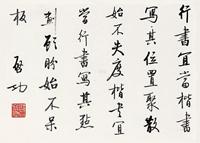 行書宜當楷書
寫其位置聚散
始不失度楷書宜
當行書寫其點
劃顧盼始不呆
板 啓功